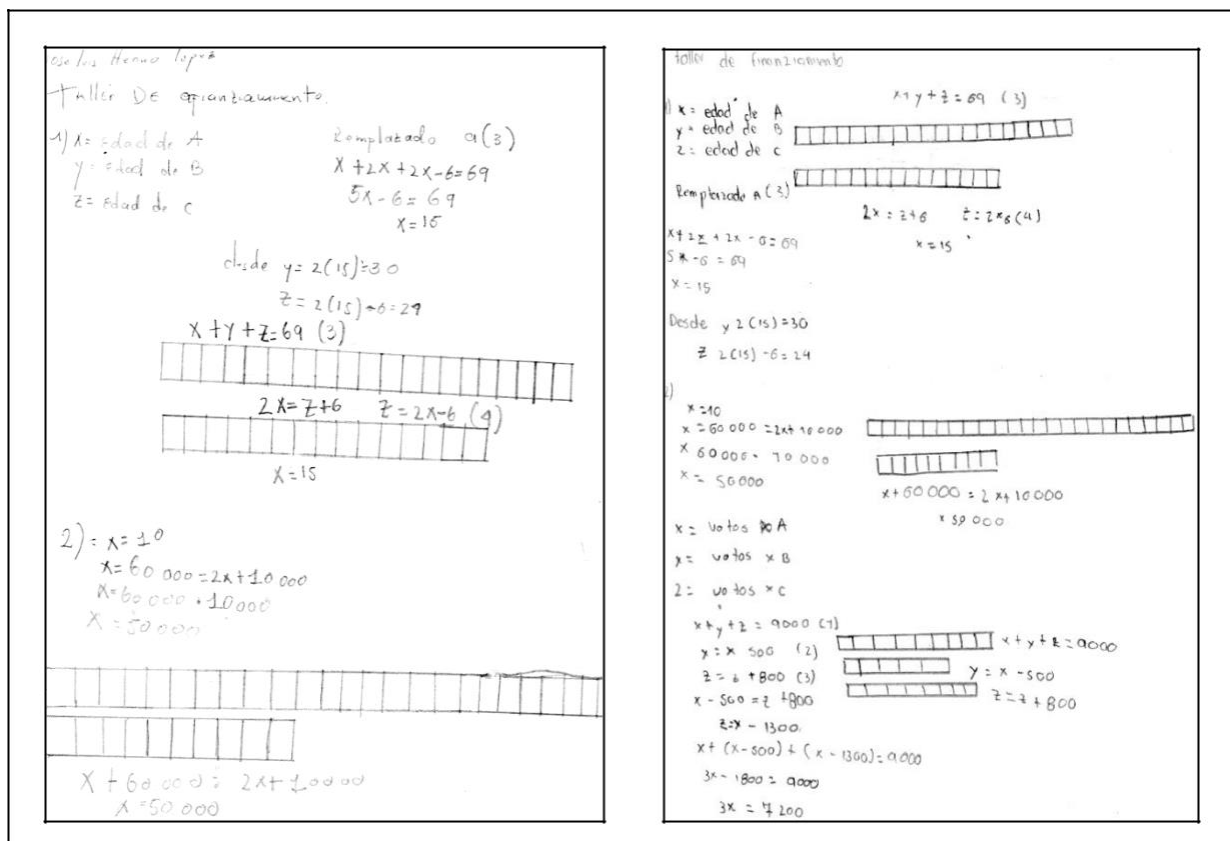 Henao lopez
Taller DE afianziamiento.
1) x= edad de A
y= edad de B
z= edad de C
Remplazado a (3)
x+2x+2x-6=69
5x-6=69
x=15
desde y=2(15)=30
z=2(15)-6=24
x+y+z=69 (3)
2x=z+6 z=2x-6 (4)
x=15
2)= x=10
x=60 000=2x+10 000
x=60 000 + 10 000
x=50.000
x+60 000= 2x+10000
x=50.000
taller de
1) x= edad de A
y= edad de B
z= edad de C
x+y+z=69 (3)
Remplazado A (3)
2x=z+6 z=2x6 (4)
x=15
x+2x+2x-6=69
5x-6=69
x=15
Desde y 2(15)=30
z 2(15)-6=24
2)
x=10
x=60 000=2x+10 000
x 60 000- 10 000
x= 50000
x+60 000=2x+10000
x 50 000
x= votos A
y= votos x B
z= votos x C
x+y+z=9000 (1)
y=x 500 (2)
z= +800 (3)
x-500=z+800
z=x-1300
x+(x-500)+(x-1300)=9000
3x-1800=9000
3x=7200
x+y+z=9000
y=x-500
z=z+800